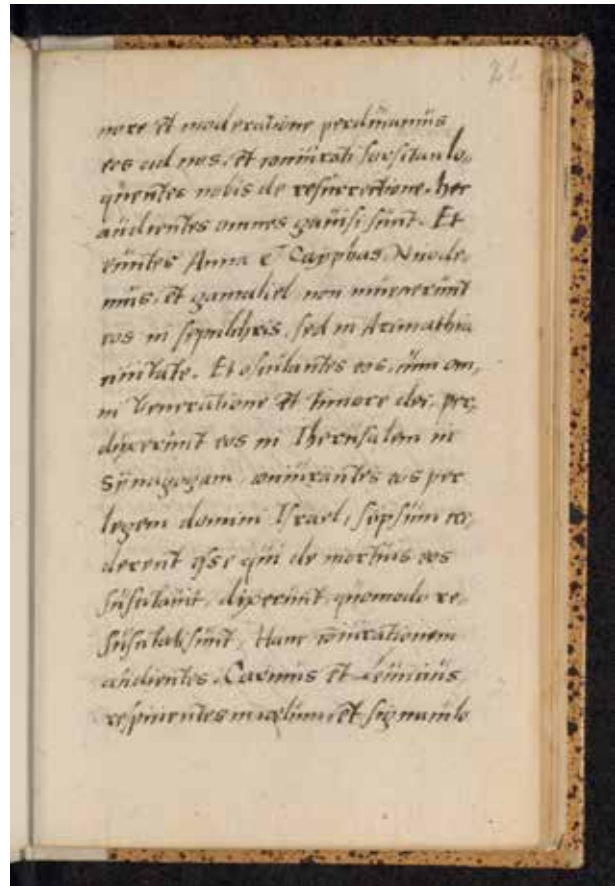 21
nore et moderatione perducamus
eos ad nos, et coniurati forsitan lo„
quentes nobis de resurrectione. hec
audientes omnes gauisi sunt. Et
euntes Anna et Cayphas, Nicode„
mus, et gamaliel non inuenerunt
eos in sepulchris, sed in Arimathia
ciuitate. Et osculantes eos, cum om„
ni Veneratione et timore dei, per„
duxerunt eos in Iherusalem in
synagogam, coniurantes eos per
legem domini Israel, si ipsum cre„
derent esse qui de mortuis eos
suscitauit, dixerunt, quomodo re„
suscitati sunt. Hanc coniurationem
audientes. Carinus et Leuicius
respicientes in celum, et signaculo